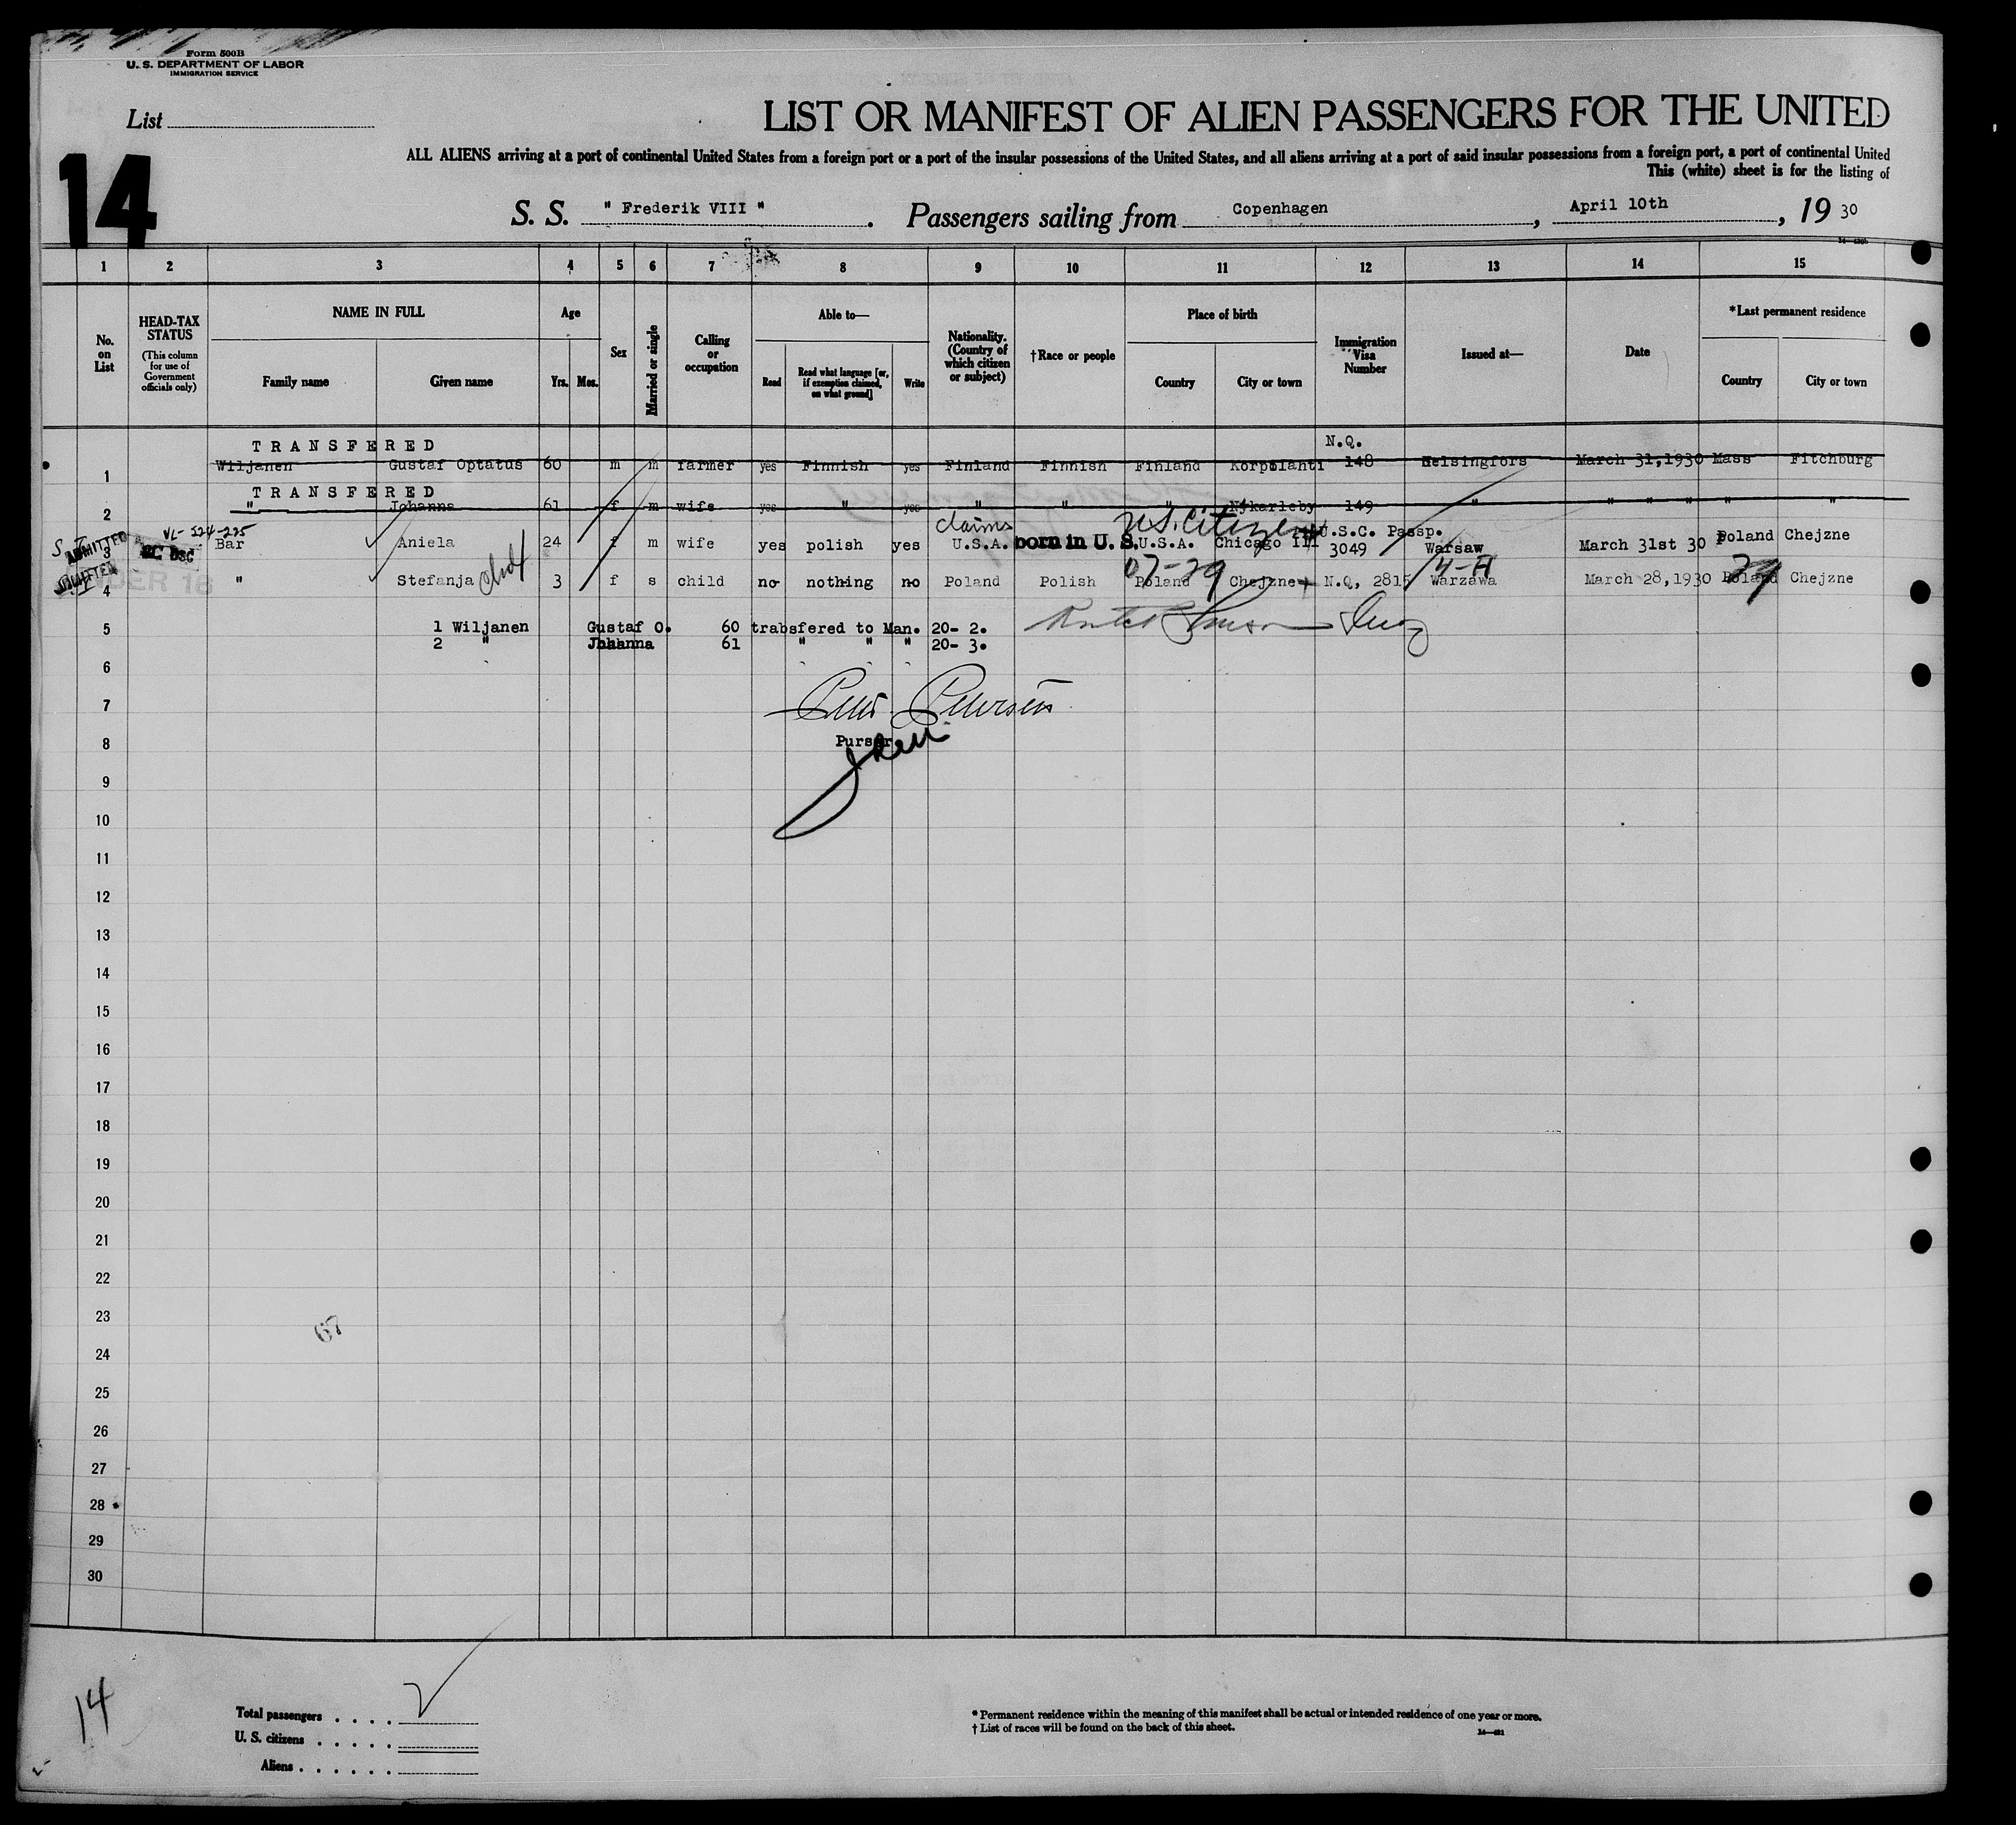 Form 500B
U. S. DEPARTMENT OF LABOR
IMMIGRATION SERVICE
List
LIST OR MANIFEST OF ALIEN PASSENGERS FOR THE UNITED
ALL ALIENS arriving at a port of continental United States from a foreign port or a port of the insular possessions of the United States, and all aliens arriving at a port of said insular possessions from a foreign port, a port of continental United
This (white) sheet is for the listing of
14
S. S. " Frederik VIII " . Passengers sailing from Copenhagen , April 10th , 19 30
1 2 3 4 5 6 7 8 9 10 11 12 13 14 15
No. on List
HEAD-TAX STATUS
(This column for use of Government officials only)
NAME IN FULL
Family name Given name
Age
Yrs. Mos.
Sex
Married or single
Calling or occupation
Able to—
Read Read what language [or, if exemption claimed, on what ground] Write
Nationality. (Country of which citizen or subject)
†Race or people
Place of birth
Country City or town
Immigration Visa Number
Issued at—
Date
*Last permanent residence
Country City or town
TRANSFERED N.Q.
1 Wiljanen Gustaf Optatus 60 m m farmer yes Finnish yes Finland Finnish Finland Korpolahti 148 Helsingfors March 31,1930 Mass Fitchburg
TRANSFERED
2 " Johanna 61 f m wife yes " yes " " " Nykarleby 149 " " " " " "
claims U.S. Citizen U.S.C. Passp.
ADMITTED
3 Bar Aniela 24 f m wife yes polish yes U.S.A. born in U. S. U.S.A. Chicago Ill 3049 Warsaw March 31st 30 Poland Chejzne
ADMITTED
4 " Stefanja 3 f s child no nothing no Poland Polish Poland Chejzne N.Q, 2815 Warzawa March 28,1930 Poland Chejzne
5 1 Wiljanen Gustaf O. 60 trabsfered to Man. 20- 2.
2 " Johanna 61 " " " 20- 3.
6
7 Petersen
8 Purser
9
10
11
12
13
14
15
16
17
18
19
20
21
22
23
67
24
25
26
27
28
29
30
14
Total passengers . . . .
U. S. citizens . . . . .
Aliens . . . . . .
* Permanent residence within the meaning of this manifest shall be actual or intended residence of one year or more.
† List of races will be found on the back of this sheet.